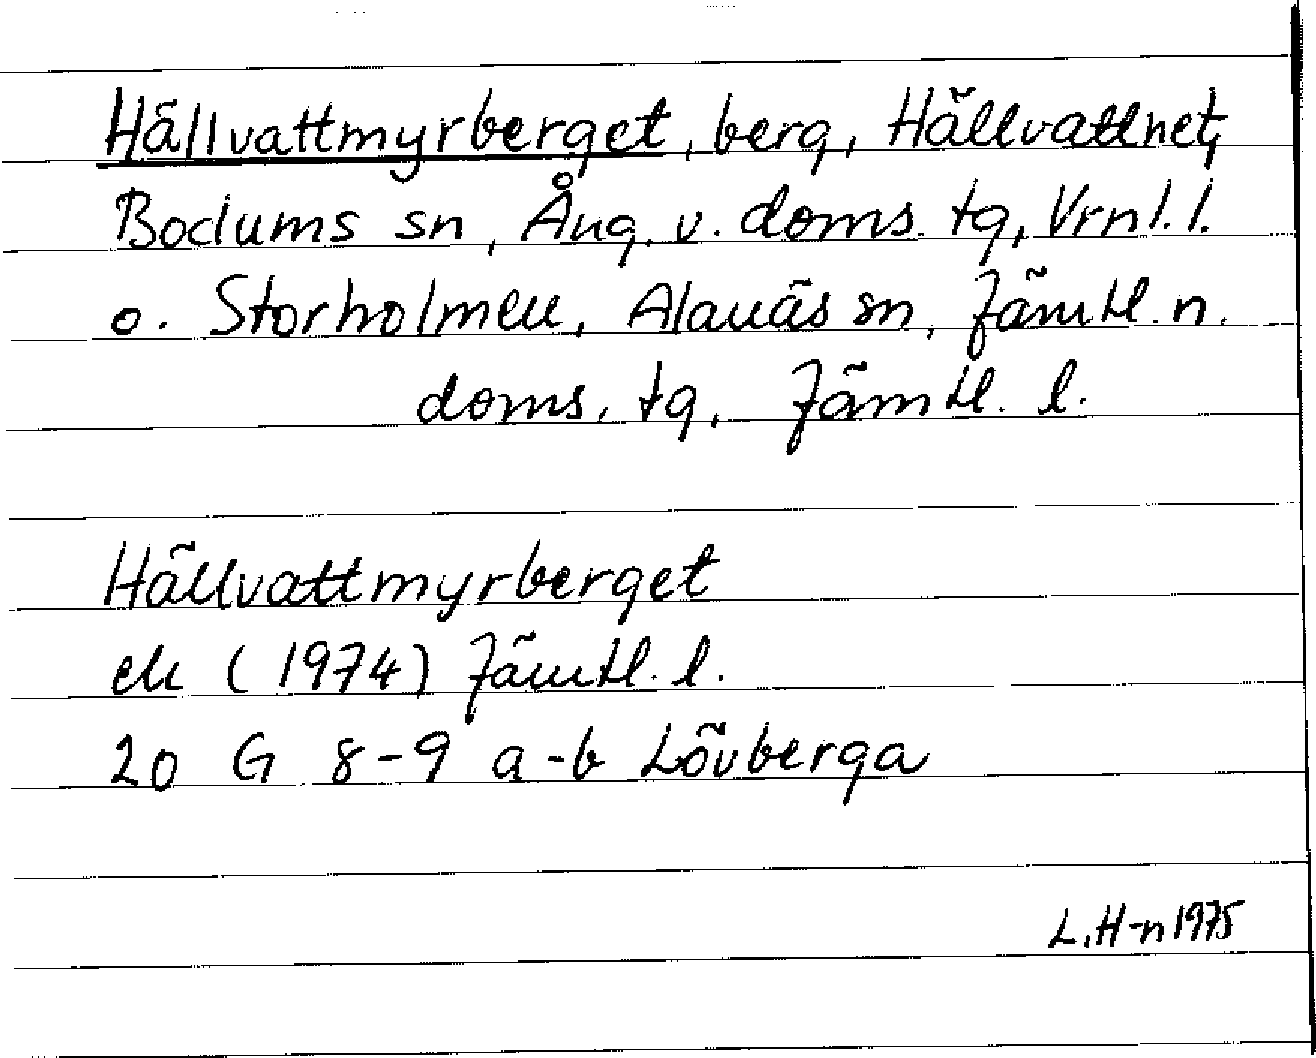 Hällvattmyrberget, berg, Hällvattnet,
Bodums sn, Ång. v. doms. tg, Vrnl. l.
o. Storholmen, Alanäs sn, Jämtl. n.
doms. tg, Jämtl. l.
Hällvattmyrberget
ek (1974) Jämtl. l.
20 G 8-9 a-b Lövberga
L. H-n 1975